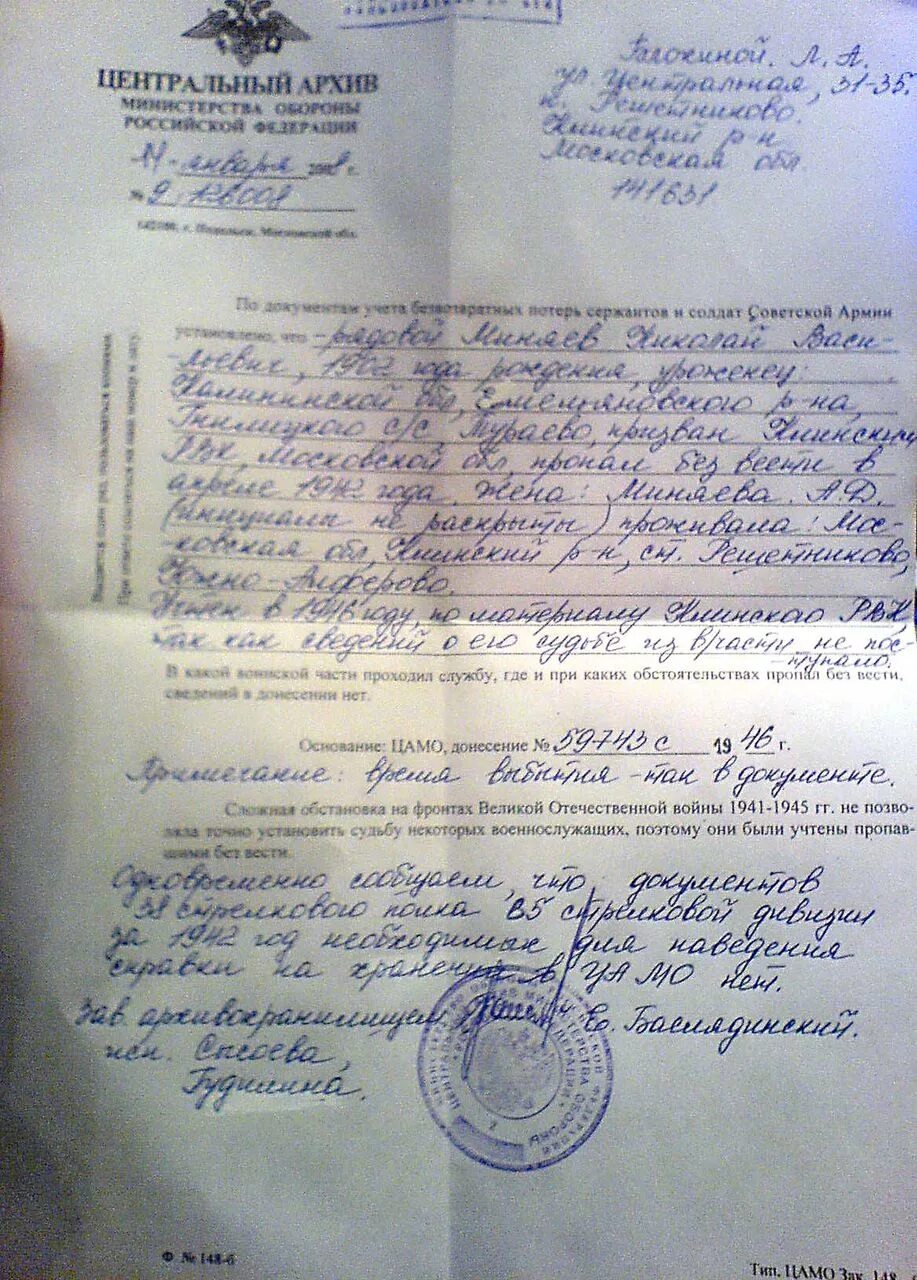 ЦЕНТРАЛЬНЫЙ АРХИВ
МИНИСТЕРСТВА ОБОРОНЫ
РОССИЙСКОЙ ФЕДЕРАЦИИ
января г.
№ 9
142100, г. Подольск, Московской обл.
Л. А.
ул. Центральная, 31-35.
п. Решетниково.
Клинский р-н
Московская обл.
141631
По документам учета безвозвратных потерь сержантов и солдат Советской Армии
установлено, что - рядовой Миняев Николай Васи-
-льевич, 1902 года рождения, уроженец:
Калининской обл, Емельяновского р-на,
Гнилицкого с/с, Мураево, призван Клинским
РВК, Московской обл, пропал без вести в
апреле 1942 года. Жена: Миняева А.Д.
(инициалы не раскрыты) проживала: Мос-
-ковская обл, Клинский р-н, ст. Решетниково,
Южно-Алферово.
Учтен в 1946 году, по материалу Клинского РВК,
так как сведений о его судьбе из в/части не пос-
-тупало.
В какой воинской части проходил службу, где и при каких обстоятельствах пропал без вести,
сведений в донесении нет.
Основание: ЦАМО, донесение № 59743 с 19 46 г.
Примечание: время выбытия - так в документе.
Сложная обстановка на фронтах Великой Отечественной войны 1941-1945 гг. не позво-
ляла точно установить судьбу некоторых военнослужащих, поэтому они были учтены пропав-
шими без вести.
Одновременно сообщаем, что документов
38 стрелкового полка 65 стрелковой дивизии
за 1942 год необходимых для наведения
справки на хранении в ЦАМО нет.
Зав. архивохранилищем Баслядинский.
исп. Сысоева,
Гудилина.
Ф. № 148-б
Тип. ЦАМО Зак. 148